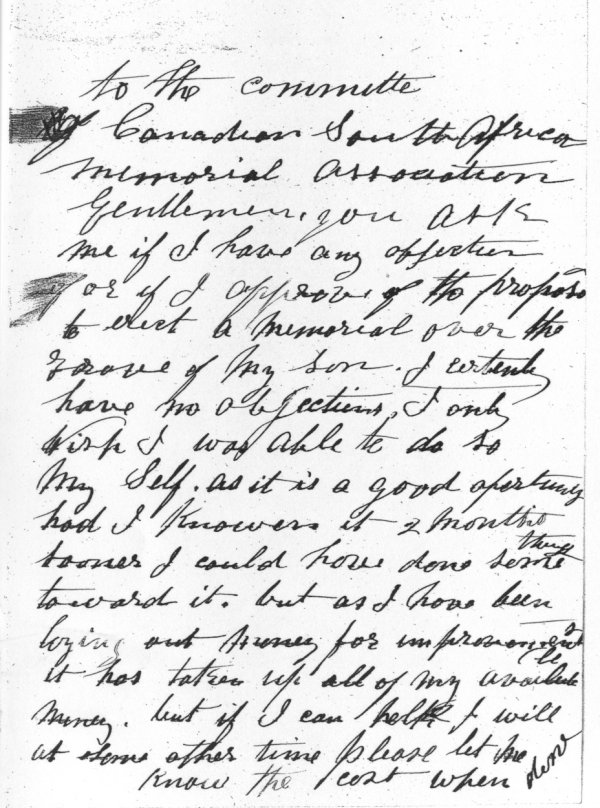 to the committe
of Canadian South Africa
Memorial Association
Gentlemen, you ask
me if I have any objection
or if I approve of the propose
to erect a Memorial over the
Grave of My son. I certenly
have no objections, I only
Wish I was able to do so
My Self. as it is a good opertuny
had I Knowen it 2 Months
sooner I could have done some thing
toward it. but as I have been
laying out money for improvement
it has taken up all of my available
Money. but if I can help I will
at some other time please let me
Know the cost when done